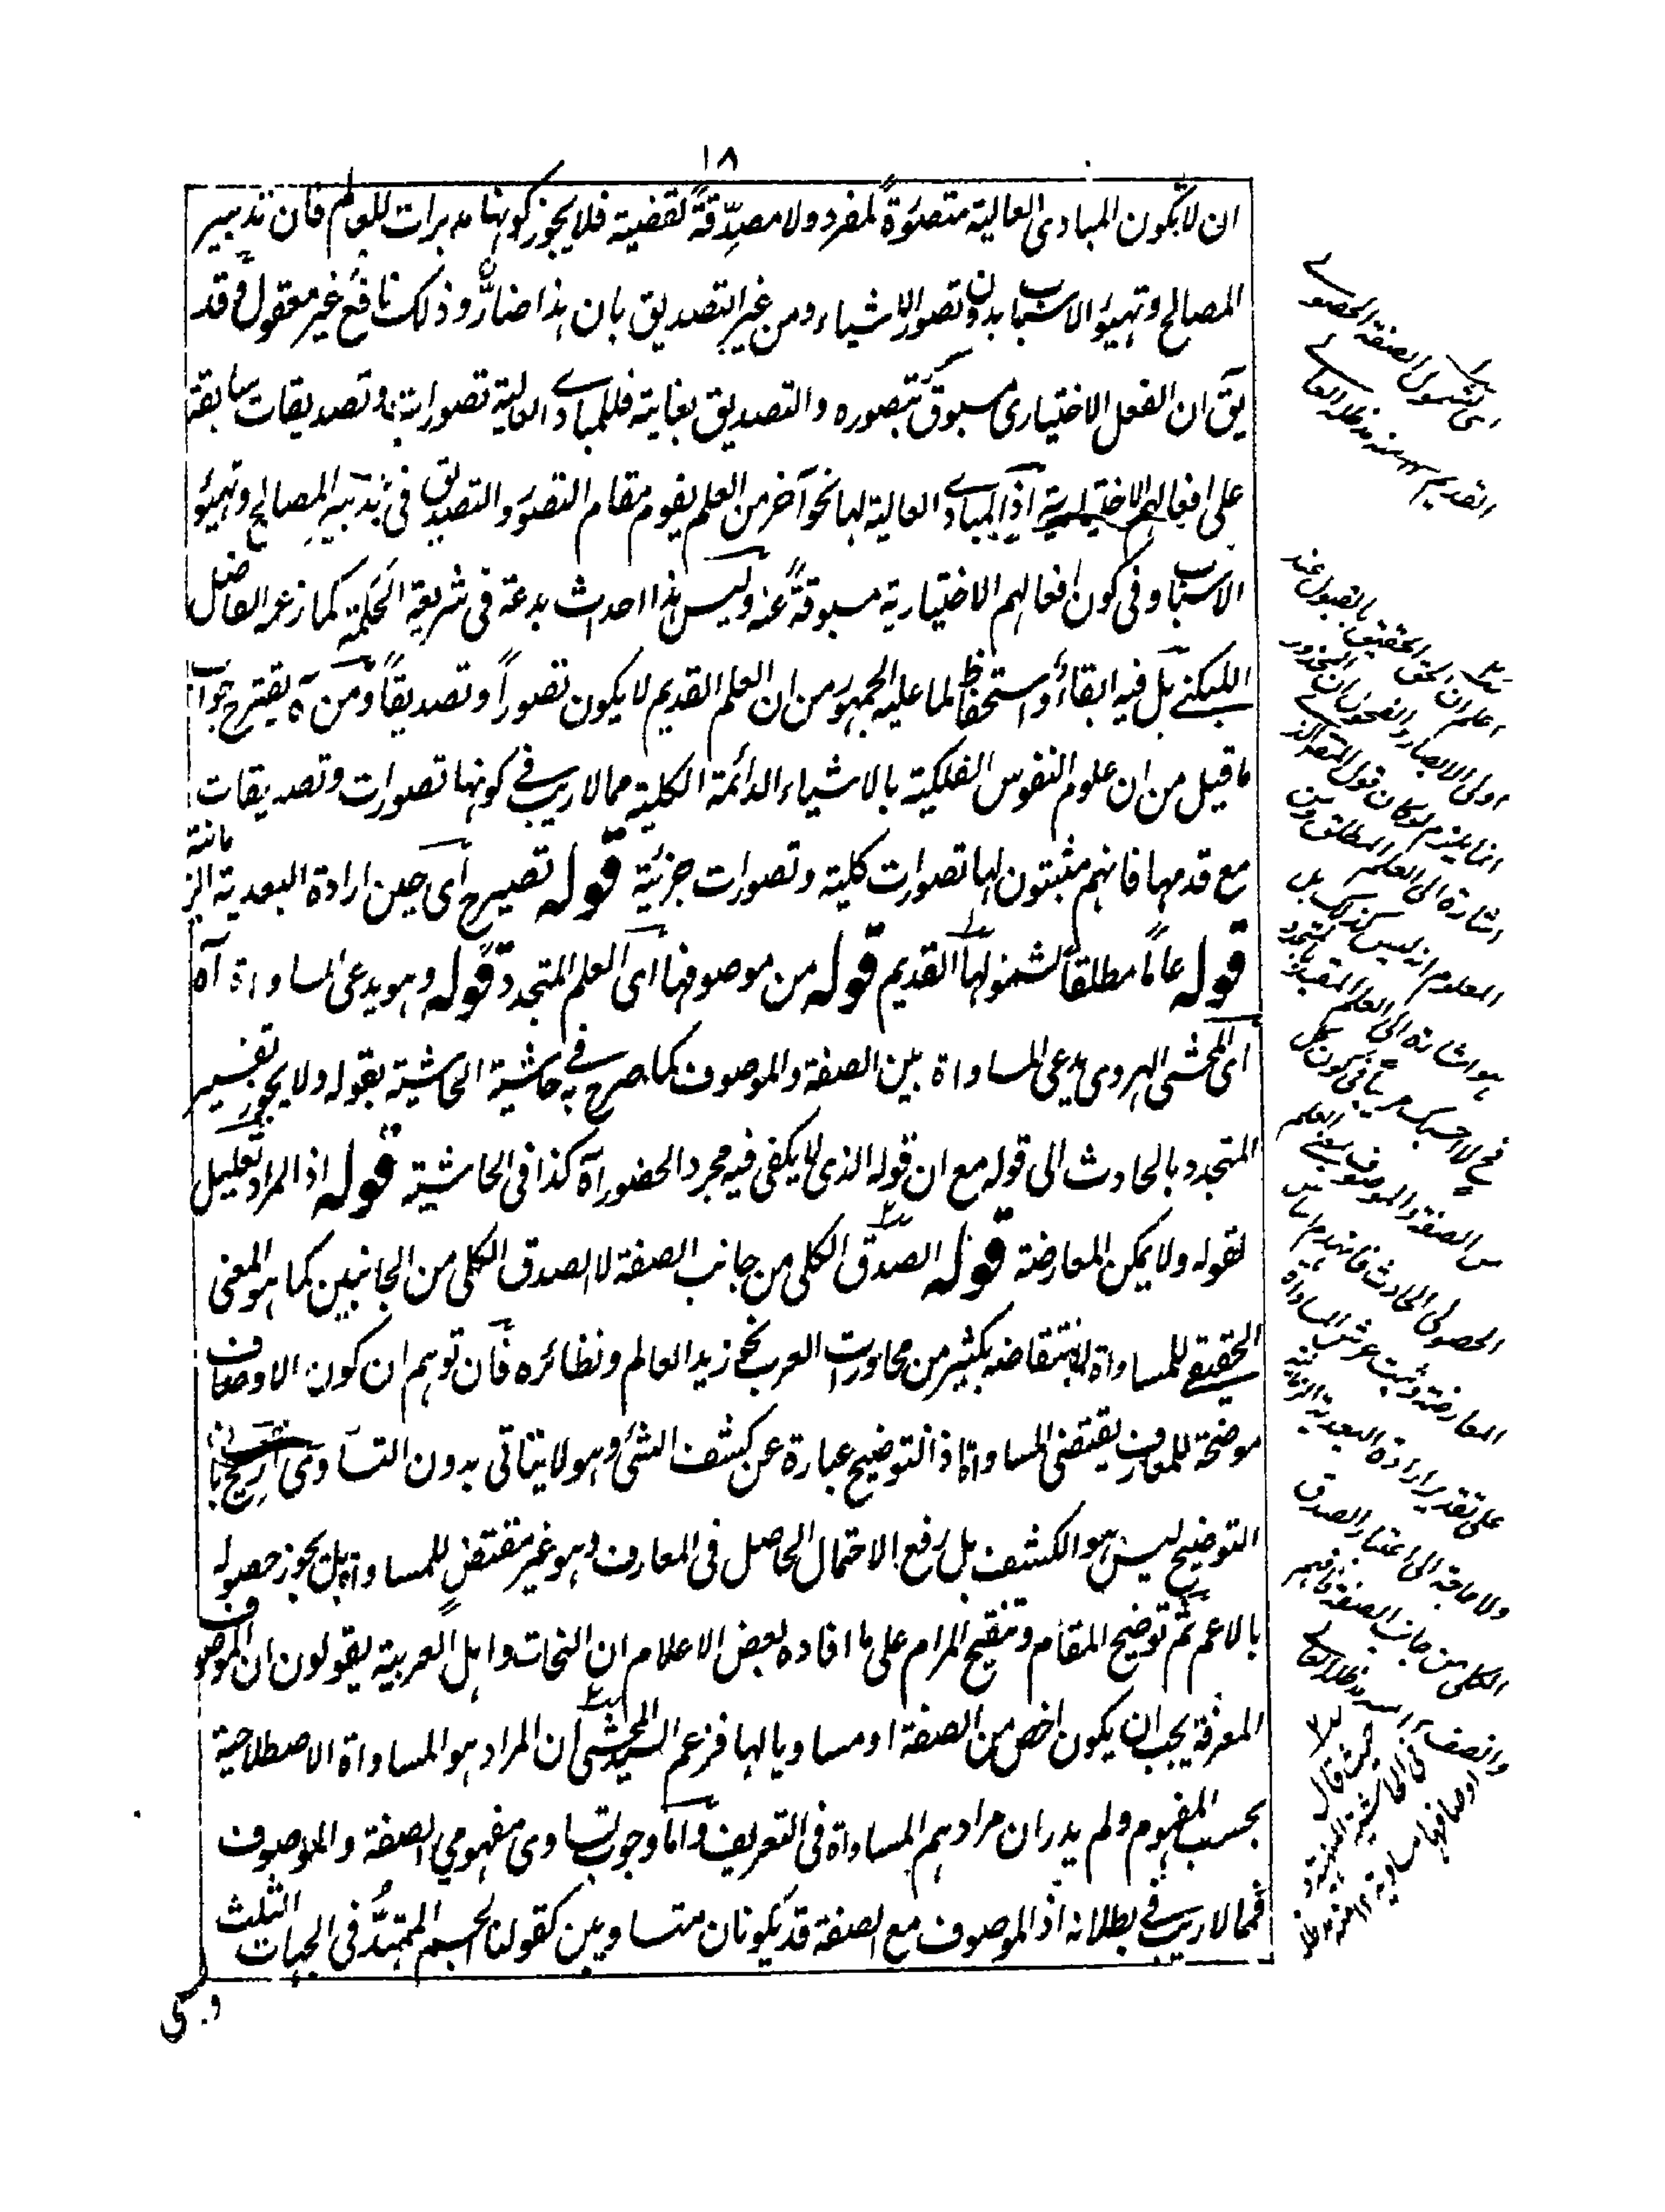 ١٨
ان لا تكون المبادى العالية متصوّرةً لمفرد ولا مصدِّقةً لقضية فلا يجوز كونها مدبرات للعالم فان تدبير
المصالح وتهيؤ الاسباب بدون تصور الاشياء ومن غير التصديق بان هذا ضارٌّ وذلك نافعٌ غير معقول وقد
يق ان الفعل الاختيارى مسبوق بتصوره والتصديق بغايته فللمبادے العالية تصورات وتصديقات سابقة
على افعالهم الاختيارية اذ المبادے العالية لها نحو آخر من العلم يقوم مقام التصور والتصديق فى تدبير المصالح وتهيؤ
الاسباب وفى كون افعالهم الاختيارية مسبوقةً عنه وليس هذا احداث بدعة فى شريعة الحكمة كما زعم الفاضل
اللبكنے بل فيه ابقاءٌ واستحفاظ لما عليه الجمهور من ان العلم القديم لا يكون تصوراً وتصديقاً ومن ه يقترح جواب
ما قيل من ان علوم النفوس الفلكية بالاشياء الدائمة الكلية مما لا ريب فے كونها تصورات وتصديقات
مع قدمها فانهم مثبتون لها تصورات كلية وتصورات جزئية قوله تصيرح اى حين ارادة البعدية الزمانية
قوله عاماً مطلقاً لشمولها القديم قوله من موصوفها اى العلم المتجدد قوله وهو يدعى المساواة آه
اى المحشى الهروى يدعى المساواة بين الصفة والموصوف كما صرح به فے حاشية الحاشية بقوله ولا يجوز تفسير
المتجدد بالحادث الى قوله مع ان قوله الذى لا يكفى فيه مجرد الحضور آه كذا فى الحاشية قوله اذ المراد تعليل
لقوله ولا يمكن المعارضة قوله الصدق الكلى من جانب الصفة لا الصدق الكلى من الجانبين كما هو المعنى
الحقيقے للمساواة لانتقاضه بكثير من محاورات العرب نحو زيد العالم ونظائره فان توهم ان كون الاوصاف
موضحة للمعارف يقتضى المساواة اذ التوضيح عبارة عن كشف الشئ وهو لا يتاتى بدون التساوى
التوضيح ليس هو الكشف بل رفع الاحتمال الحاصل فى المعارف وهو غير مقتضٍ للمساواة بل يجوز حصوله
بالاعم ثم توضيح المقام وتنقيح المرام على ما افاده بعض الاعلام ان النحات واهل العربية يقولون ان الموصوف
المعرفة يجب ان يكون اخص من الصفة او مساويا لها فزعم السيد المحشى ان المراد هو المساواة الاصطلاحية
بحسب المفهوم ولم يدر ان مرادهم المساواة فى التعريف واما وجوب تساوى مفهومي الصفة والموصوف
فمما لا ريب فے بطلانه اذ الموصوف مع الصفة قد يكونان متساويين كقولنا الجسم الممتدُّ فى الجهات الثلث
اى لشمول الصفة الحصولے
القديم منه مدظله العالے
اعلم ان الحق الحقيق بالقبول عند
اولى الابصار والفحول ان المحذور
انما يلزم لو كان قول المتجدد
اشارة الى العلم المطلق ومن
المعلوم انه ليس كذلك بل
هو اشارة الى العلم المقيد بالمتجدد
فح لا شك فى كون كل
من الصفة والموصوف بمعنى العلم
الحصولى الحادث فانهدم اساس
المعارضة وثبت عرش المساواة
على تقدير ارادة البعدية الزمانية
ولا حاجة الى اعتبار الصدق
الكلى من جانب الصفة فافهم
وانصف منه مدظله العالے
حيث قال
فى الحاشية المنهية